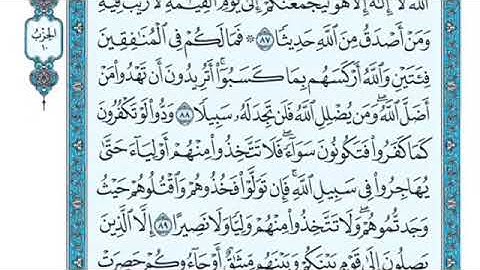 ٱللَّهُ لَآ إِلَٰهَ إِلَّا هُوَ لَيَجۡمَعَنَّكُمۡ إِلَىٰ يَوۡمِ ٱلۡقِيَٰمَةِ لَا رَيۡبَ فِيهِ
وَمَنۡ أَصۡدَقُ مِنَ ٱللَّهِ حَدِيثٗا ٨٧ ۞ فَمَا لَكُمۡ فِي ٱلۡمُنَٰفِقِينَ
فِئَتَيۡنِ وَٱللَّهُ أَرۡكَسَهُم بِمَا كَسَبُوٓاْۚ أَتُرِيدُونَ أَن تَهۡدُواْ مَنۡ
أَضَلَّ ٱللَّهُۖ وَمَن يُضۡلِلِ ٱللَّهُ فَلَن تَجِدَ لَهُۥ سَبِيلٗا ٨٨ وَدُّواْ لَوۡ تَكۡفُرُونَ
كَمَا كَفَرُواْ فَتَكُونُونَ سَوَآءٗۖ فَلَا تَتَّخِذُواْ مِنۡهُمۡ أَوۡلِيَآءَ حَتَّىٰ
يُهَاجِرُواْ فِي سَبِيلِ ٱللَّهِۚ فَإِن تَوَلَّوۡاْ فَخُذُوهُمۡ وَٱقۡتُلُوهُمۡ حَيۡثُ
وَجَدتُّمُوهُمۡۖ وَلَا تَتَّخِذُواْ مِنۡهُمۡ وَلِيّٗا وَلَا نَصِيرًا ٨٩ إِلَّا ٱلَّذِينَ
يَصِلُونَ إِلَىٰ قَوۡمِۭ بَيۡنَكُمۡ وَبَيۡنَهُم مِّيثَٰقٌ أَوۡ جَآءُوكُمۡ حَصِرَتۡ
ٱلحِزۡبُ
١٠